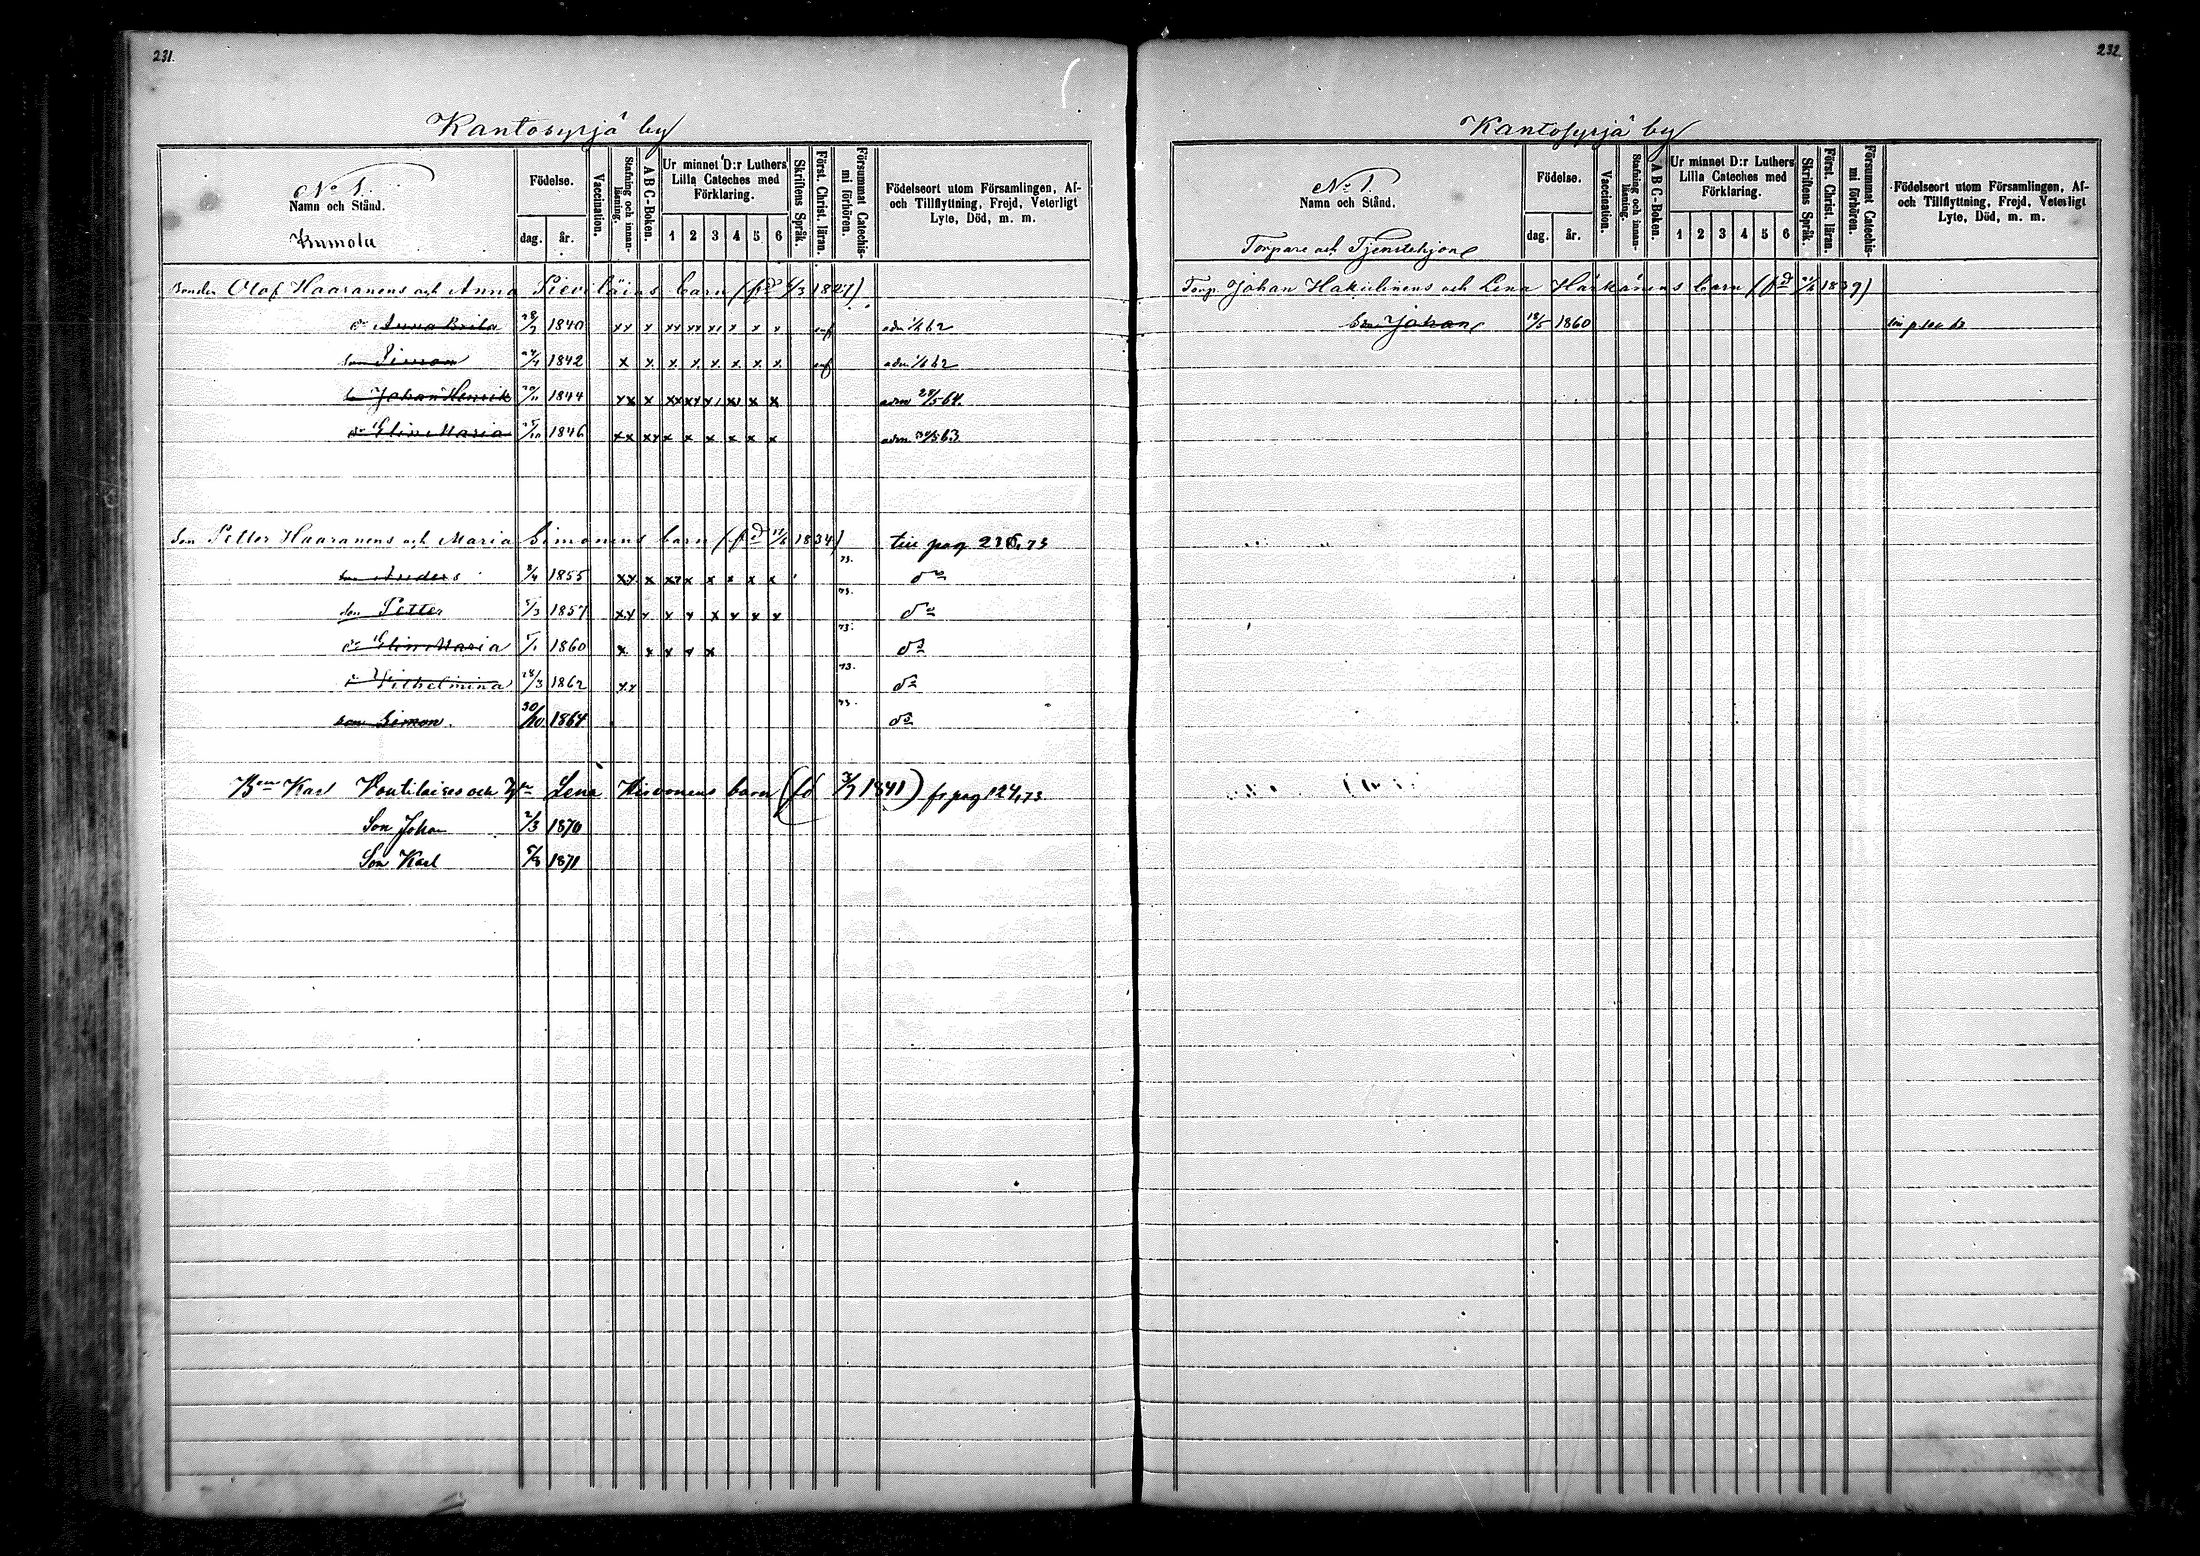 231.
Kantosyrjä by
No 1.
Namn och Stånd.
Kumola
Födelse.
dag. år.
Vaccination.
Stafning och innanläsning.
ABC-Boken.
Ur minnet D:r Luthers Lilla Cateches med Förklaring.
1 2 3 4 5 6
Skriftens Språk.
Först. Christ. läran.
Försummat Catechismi förhören.
Födelseort utom Församlingen, Af- och Tillflyttning, Frejd, Veterligt Lyte, Död, m. m.
Bonden Olof Haaranens och Anna Pieviläias barn (fd 4/3 1827).
dr Anna Brita 28/7 1840 xx x xx xx x1 x x x adm 1/6 62
son Simon 24/4 1842 x x x x x x x x adm 1/6 62
son Johan Henrik 20/11 1844 xx x xx xx x1 x1 x x adm 29/5 64.
dr Elin Maria 1846 xx xx x x x x x x adm 30/5 63
Son Petter Haaranens och Maria Simonens barn (fd 1834) till pag 236,73
son Anders 8/4 1855 xx x xx x x x x x 73. do
son Petter 5/3 1857 xx x x x x x x x 73. do
dr Elin Maria 5/1 1860 x x x x x 73. do
dr Vilhelmina 28/3 1862 xx 73. do
son Simon. 30/10 1864 73. do
Bon Karl Voutilaises och Lena Hirvonens barn (fd 3/7 1841) fr pag 124,73
Son Johan 2/3 1870
Son Karl 5/8 1871
232.
Kantosyrjä by
No 1.
Namn och Stånd.
Torpare och Tjenstehjon
Födelse.
dag. år.
Vaccination.
Stafning och innanläsning.
ABC-Boken.
Ur minnet D:r Luthers Lilla Cateches med Förklaring.
1 2 3 4 5 6
Skriftens Språk.
Först. Christ. läran.
Försummat Catechismi förhören.
Födelseort utom Församlingen, Af- och Tillflyttning, Frejd, Veterligt Lyte, Död, m. m.
Torp. Johan Hakulinens och Lena Härkänens barn (fd 1839)
Son Johan 18/5 1860